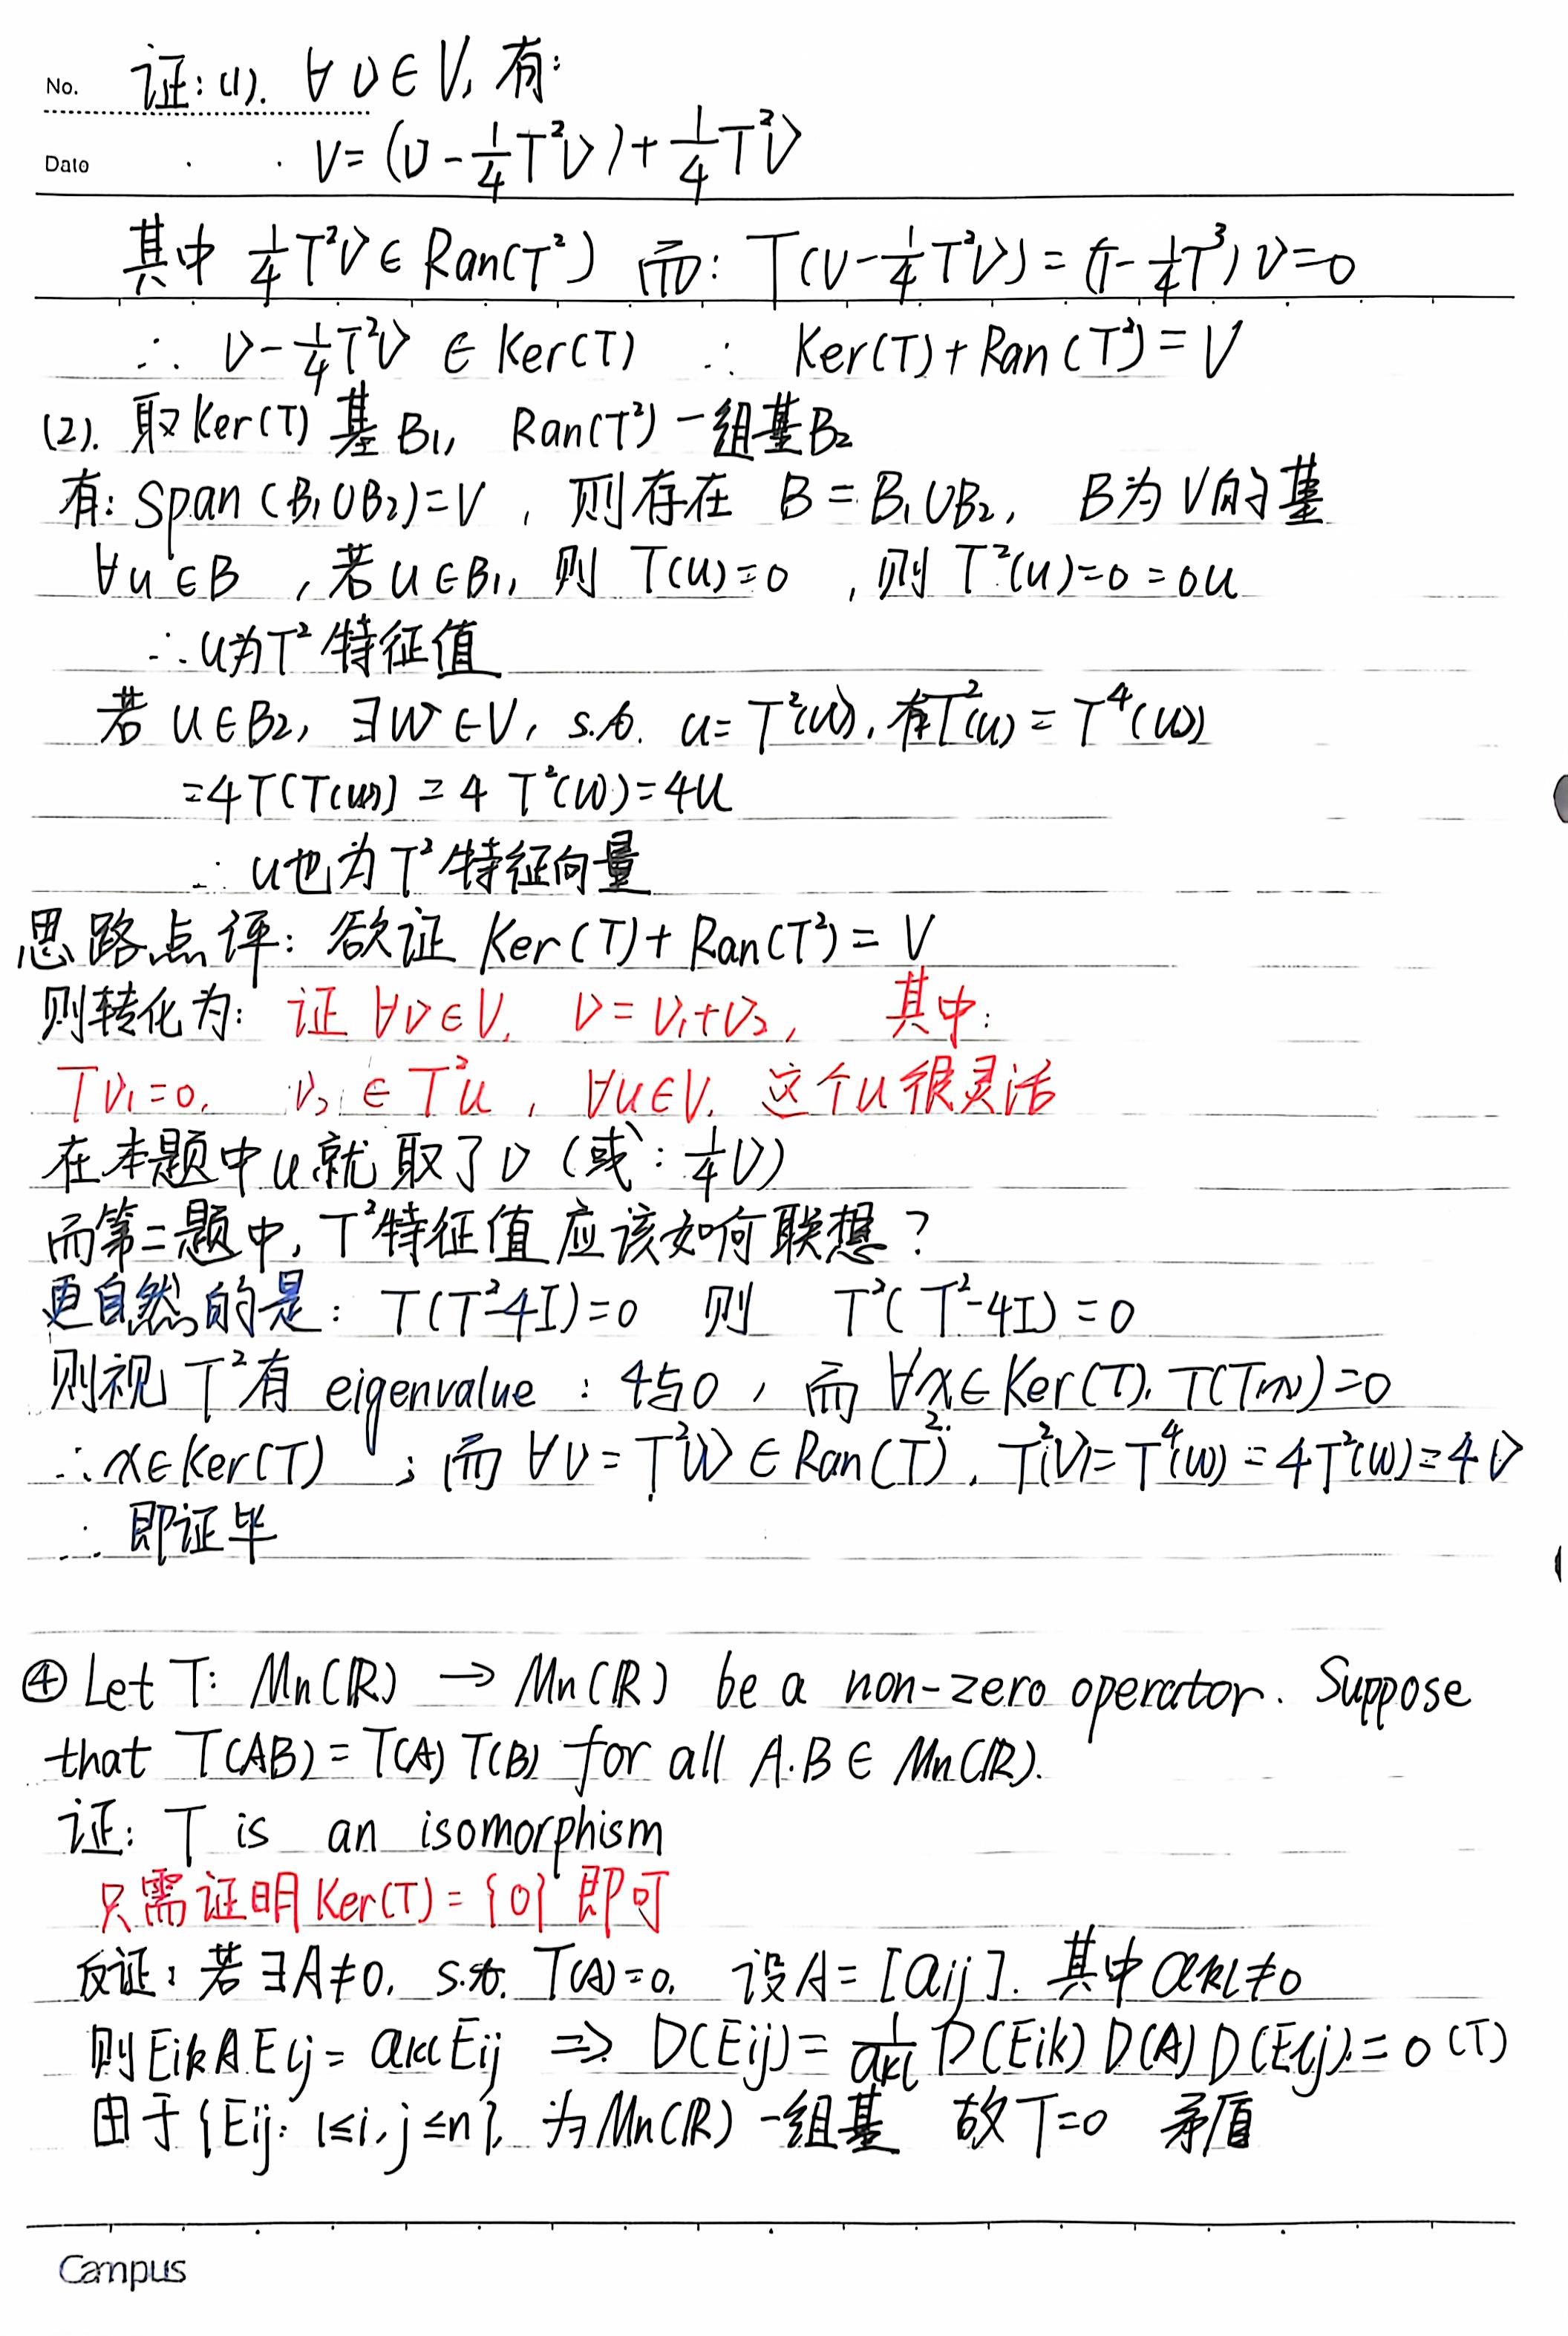 No. 证:(1). ∀υ∈V, 有:
Date V=(υ-1/4T²υ)+1/4T²υ
其中 1/4T²υ∈Ran(T²) 而: T(υ-1/4T²υ)=(T-1/4T³)υ=0
∴ υ-1/4T²υ ∈ Ker(T) ∴ Ker(T)+Ran(T²)=V
(2). 取Ker(T)基B₁, Ran(T²)一组基B₂
有: Span(B₁∪B₂)=V, 则存在 B=B₁∪B₂, B为V的基
∀u∈B, 若u∈B₁, 则 T(u)=0, 则 T²(u)=0=0u
∴u为T²特征值
若 u∈B₂, ∃w∈V, s.t. u=T²(w), 有T²(u)=T⁴(w)
=4T(T(w))=4T²(w)=4u
∴ u也为T²特征向量
思路点评: 欲证 Ker(T)+Ran(T²)=V
则转化为: 证 ∀υ∈V, υ=υ₁+υ₂, 其中:
Tυ₁=0, υ₂∈T²u, ∀u∈V, 这个u很灵活
在本题中u就取了υ (或: 1/4υ)
而第二题中, T²特征值应该如何联想?
更自然的是: T(T²-4I)=0 则 T²(T²-4I)=0
则视T²有 eigenvalue: 4与0, 而 ∀x∈Ker(T), T(T(x))=0
∴x∈Ker(T); 而 ∀υ=T²w∈Ran(T²), T²(υ)=T⁴(w)=4T²(w)=4υ
∴ 即证毕
④ Let T: Mn(ℝ) → Mn(ℝ) be a non-zero operator. Suppose
that T(AB)=T(A)T(B) for all A.B∈Mn(ℝ).
证: T is an isomorphism
只需证明Ker(T)={0}即可
反证: 若∃A≠0, s.t. T(A)=0, 设A=[aij]. 其中akl≠0
则EikAElj=aklEij ⇒ D(Eij)=1/akl D(Eik)D(A)D(Elj)=0 (T)
由于{Eij: 1≤i,j≤n}, 为Mn(ℝ)一组基 故T=0 矛盾
Campus